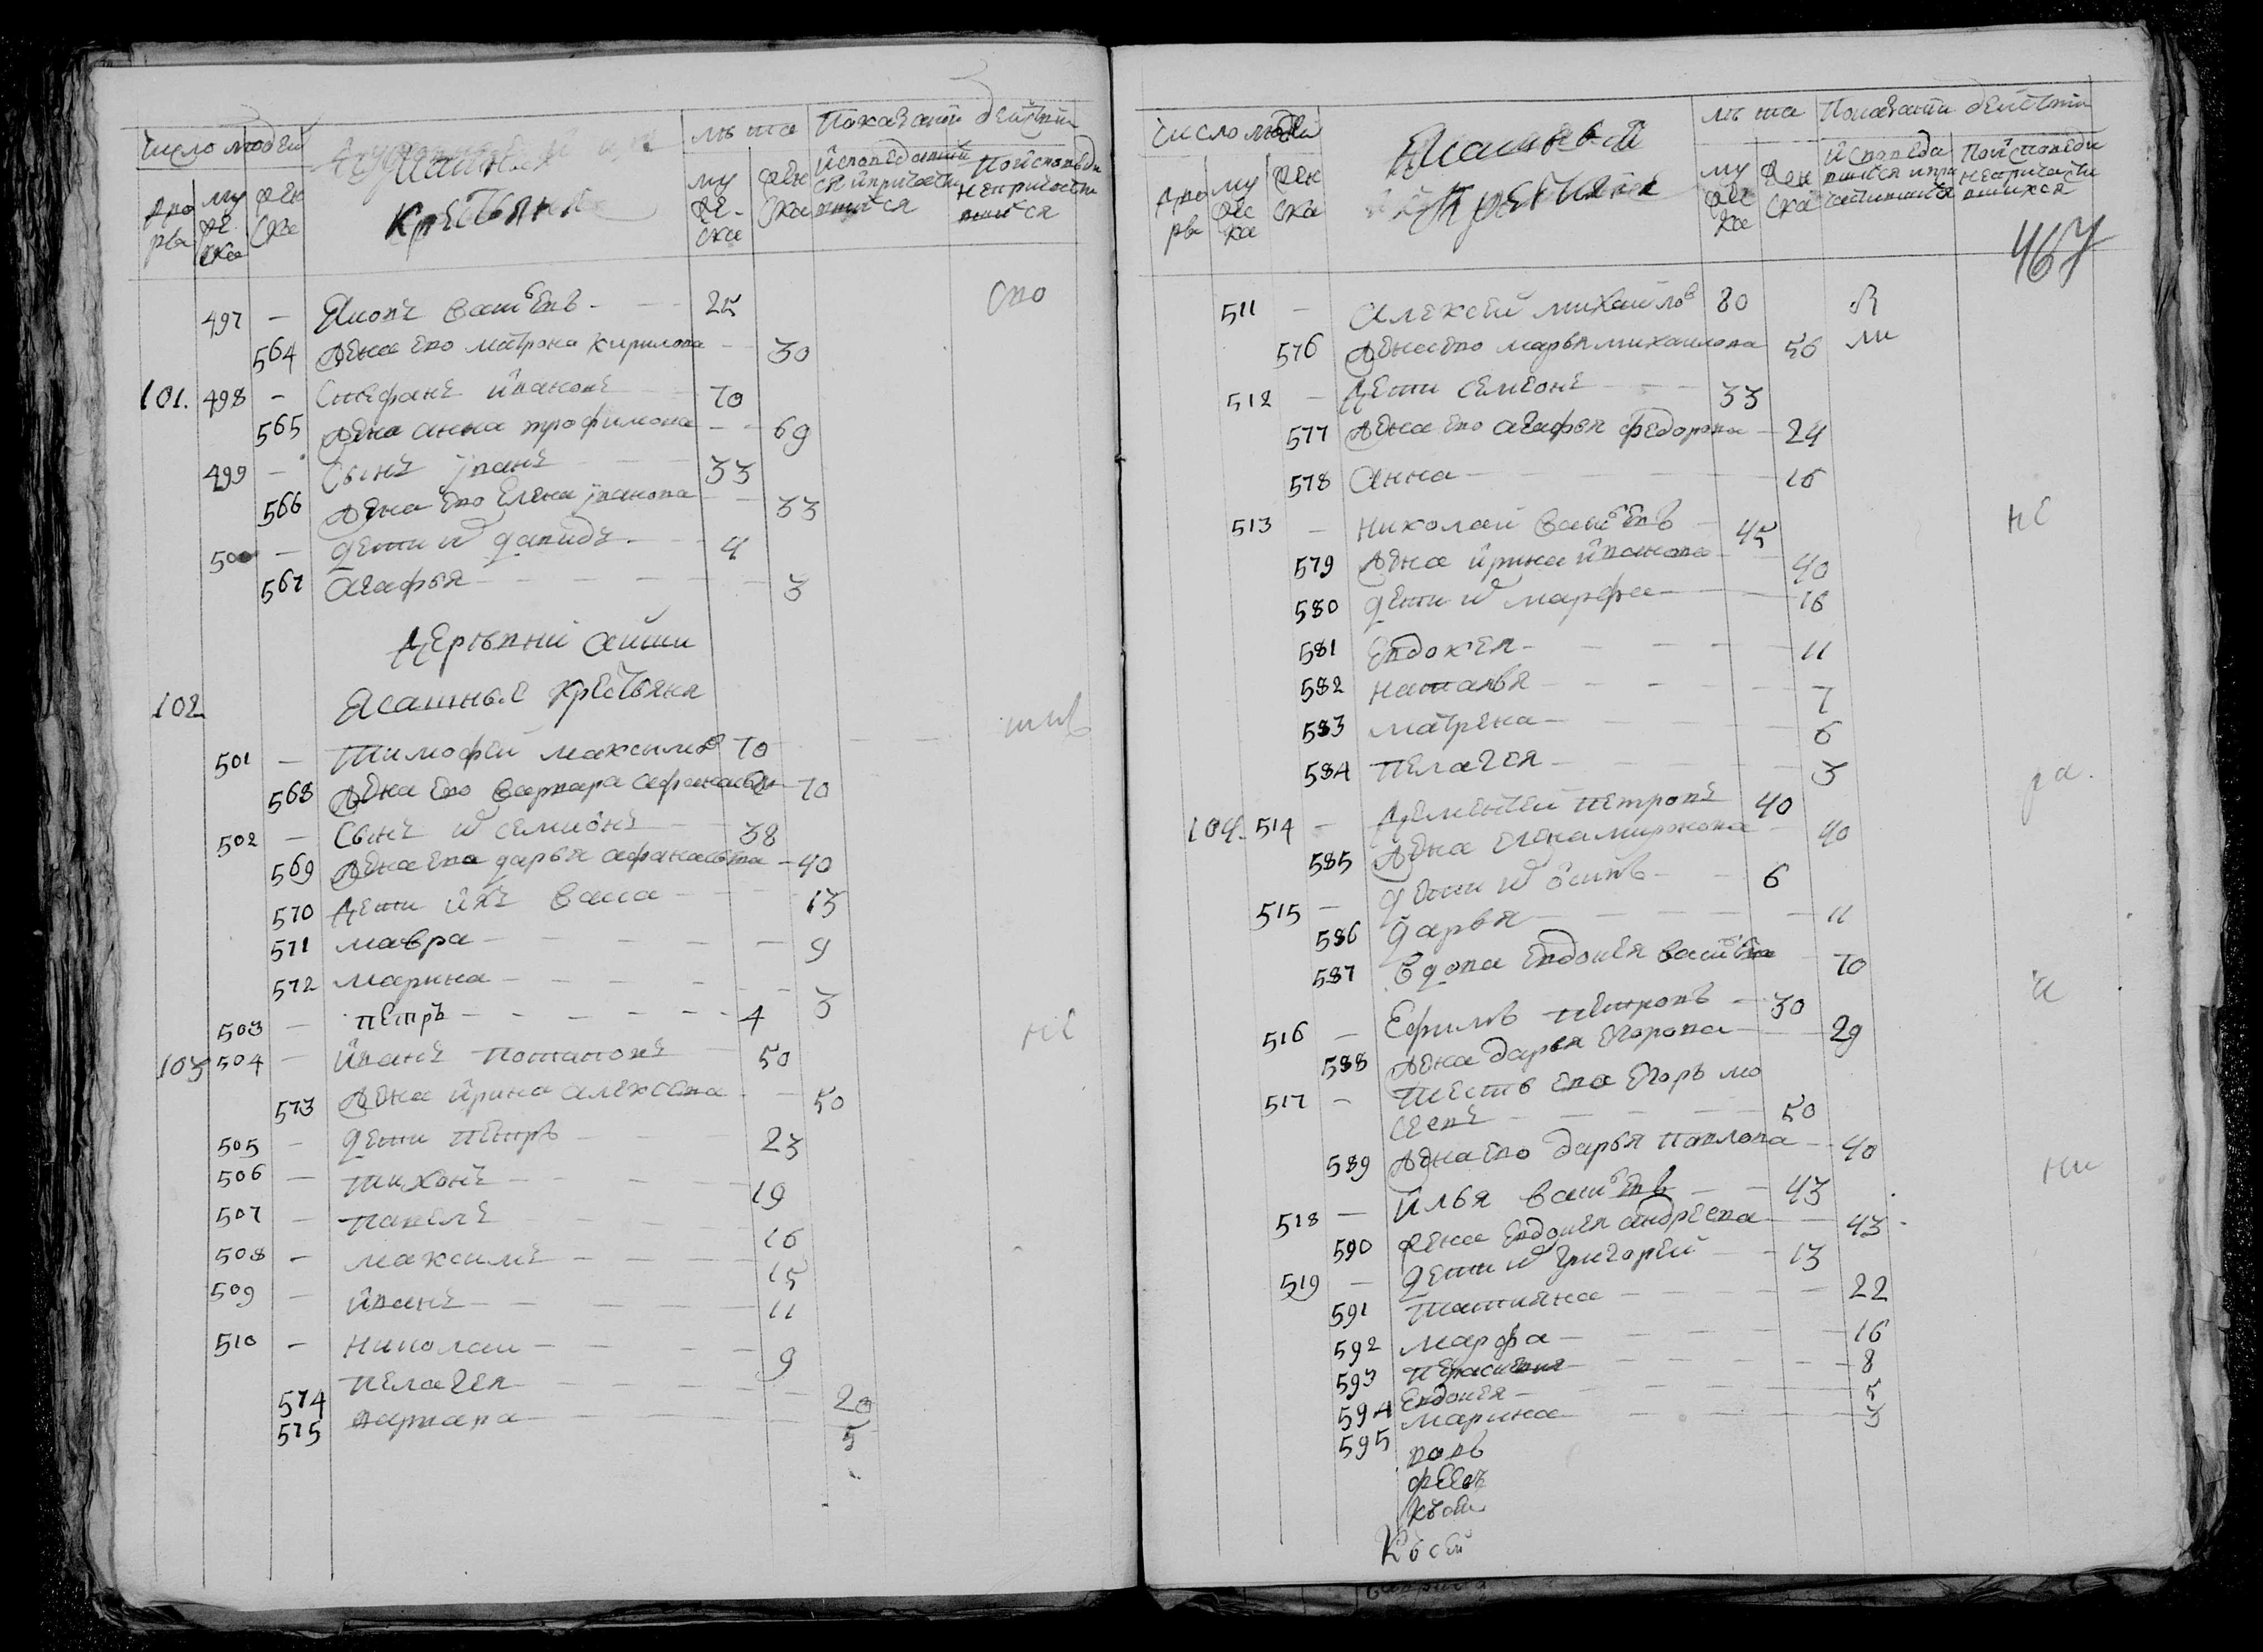 число людей
лѣта
Показаніи дѣйствіи
дво
ры
му
же
ска
жен
ска
Ясашныя
крестьяня
му
же-
ска
жен
ска
исповедавши
ся и причасти
вшихся
по исповеди
непричасти
вшихся
497 — Яковъ васильевъ 25 спо
564 жена ево матрона кирилова 30
101. 498 — Стефанъ ивановъ 70
565 жена анна трофимова 69
499 — Сынъ іванъ 33
566 жена ево елена іванова 33
500 — дети ѡ давидъ 4
567 агафья 3
деревни аиши
102 Ясашные крестьяня
501 — тимофеи максимов 70
568 жена ево варвара афанасьев 70
502 — Сынъ ѡ семионъ 38
569 жена ево дарья афанасьева 40
570 дети ихъ васа 13
571 мавра 9
572 марина 3
503 — петръ 4 не
103 504 — иванъ потаповъ 50
573 жена ирина алексеева 50
505 — дети петръ 23
506 — тихонъ 19
507 — павелъ 16
508 — максимъ 15
509 — иванъ 11
510 — николаи 9
574 пелагея 20
575 варвара 5
число людей
лѣта
Показаніи дѣйствіи
дво
ры
му
жес
ка
жен
ска
Ясашныя
крестьяня
му
жес
ка
жен
ска
исповеда
вшихся и при
частившихся
по исповеди
непричасти
вшихся
467
511 — алексеи михаилов 80 я
576 жена ево марья михаилова 56 ми
512 — дети семионъ 33
577 жена ево агафья федорова 24
578 анна 16
513 — николаи васильевъ 45 не
579 жена ирина иванова 40
580 дети ѡ марфа 16
581 евдокея 11
582 наталья 7
583 матрена 6
584 пелагея 3
104. 514 — дементеи петровъ 40 ра.
585 жена елена миронова 40
515 — дети ѡ осипъ 6
586 дарья 11
587 вдова евдокея васильева 70
516 — ефимъ петровъ 30 и
588 жена дарья егорова 29
517 — тесть ево егоръ мо
сеевъ 50
589 жена ево дарья павлова 40
518 — илья васильевъ 43 ни
590 жена евдокея андреева 43
519 — дети ѡ григореи 13
591 татияна 22
592 марфа 16
593 парасковия 8
594 евдокея 5
595 марина 3